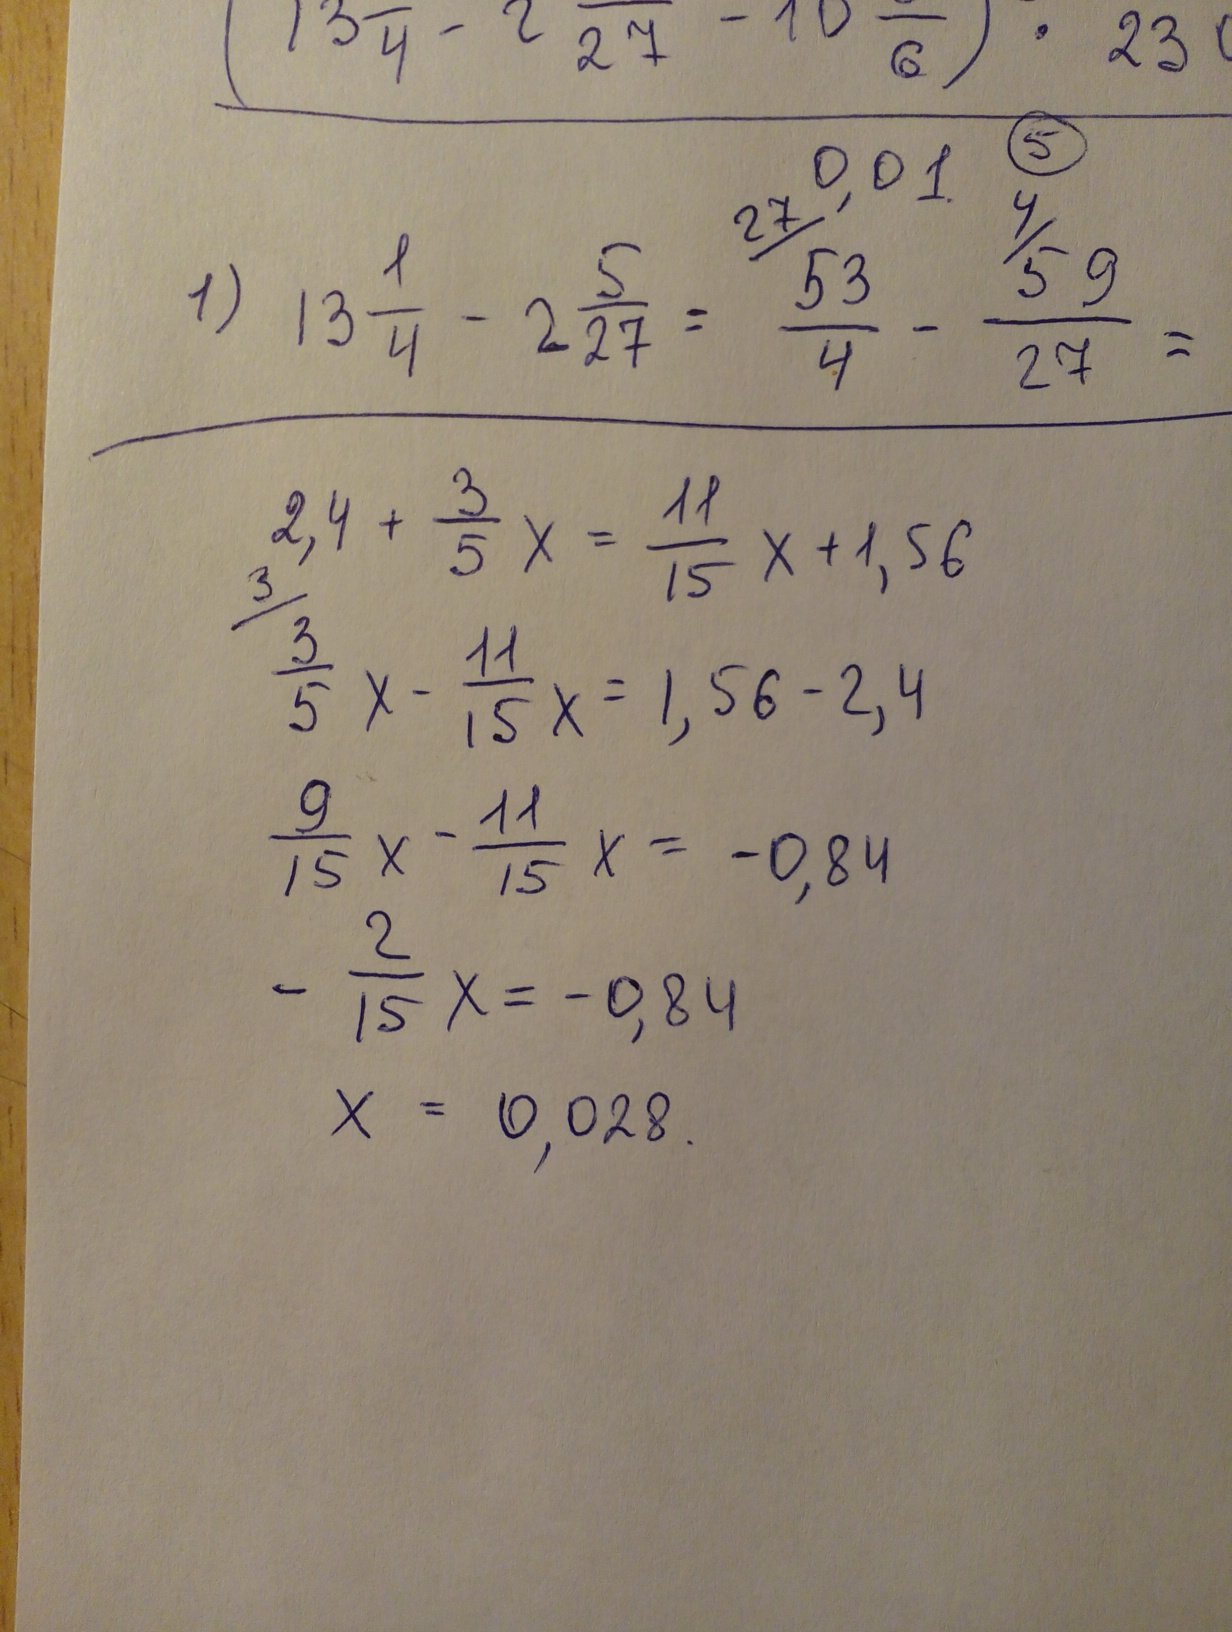 (13 /4 - 2 /27 - 10 /6) · 23
0,01 (5)
1) 13 1/4 - 2 5/27 = 27/ 53/4 - 4/ 59/27 =
2,4 + 3/5 x = 11/15 x + 1,56
3/ 3/5 x - 11/15 x = 1,56 - 2,4
9/15 x - 11/15 x = -0,84
- 2/15 x = -0,84
x = 0,028.